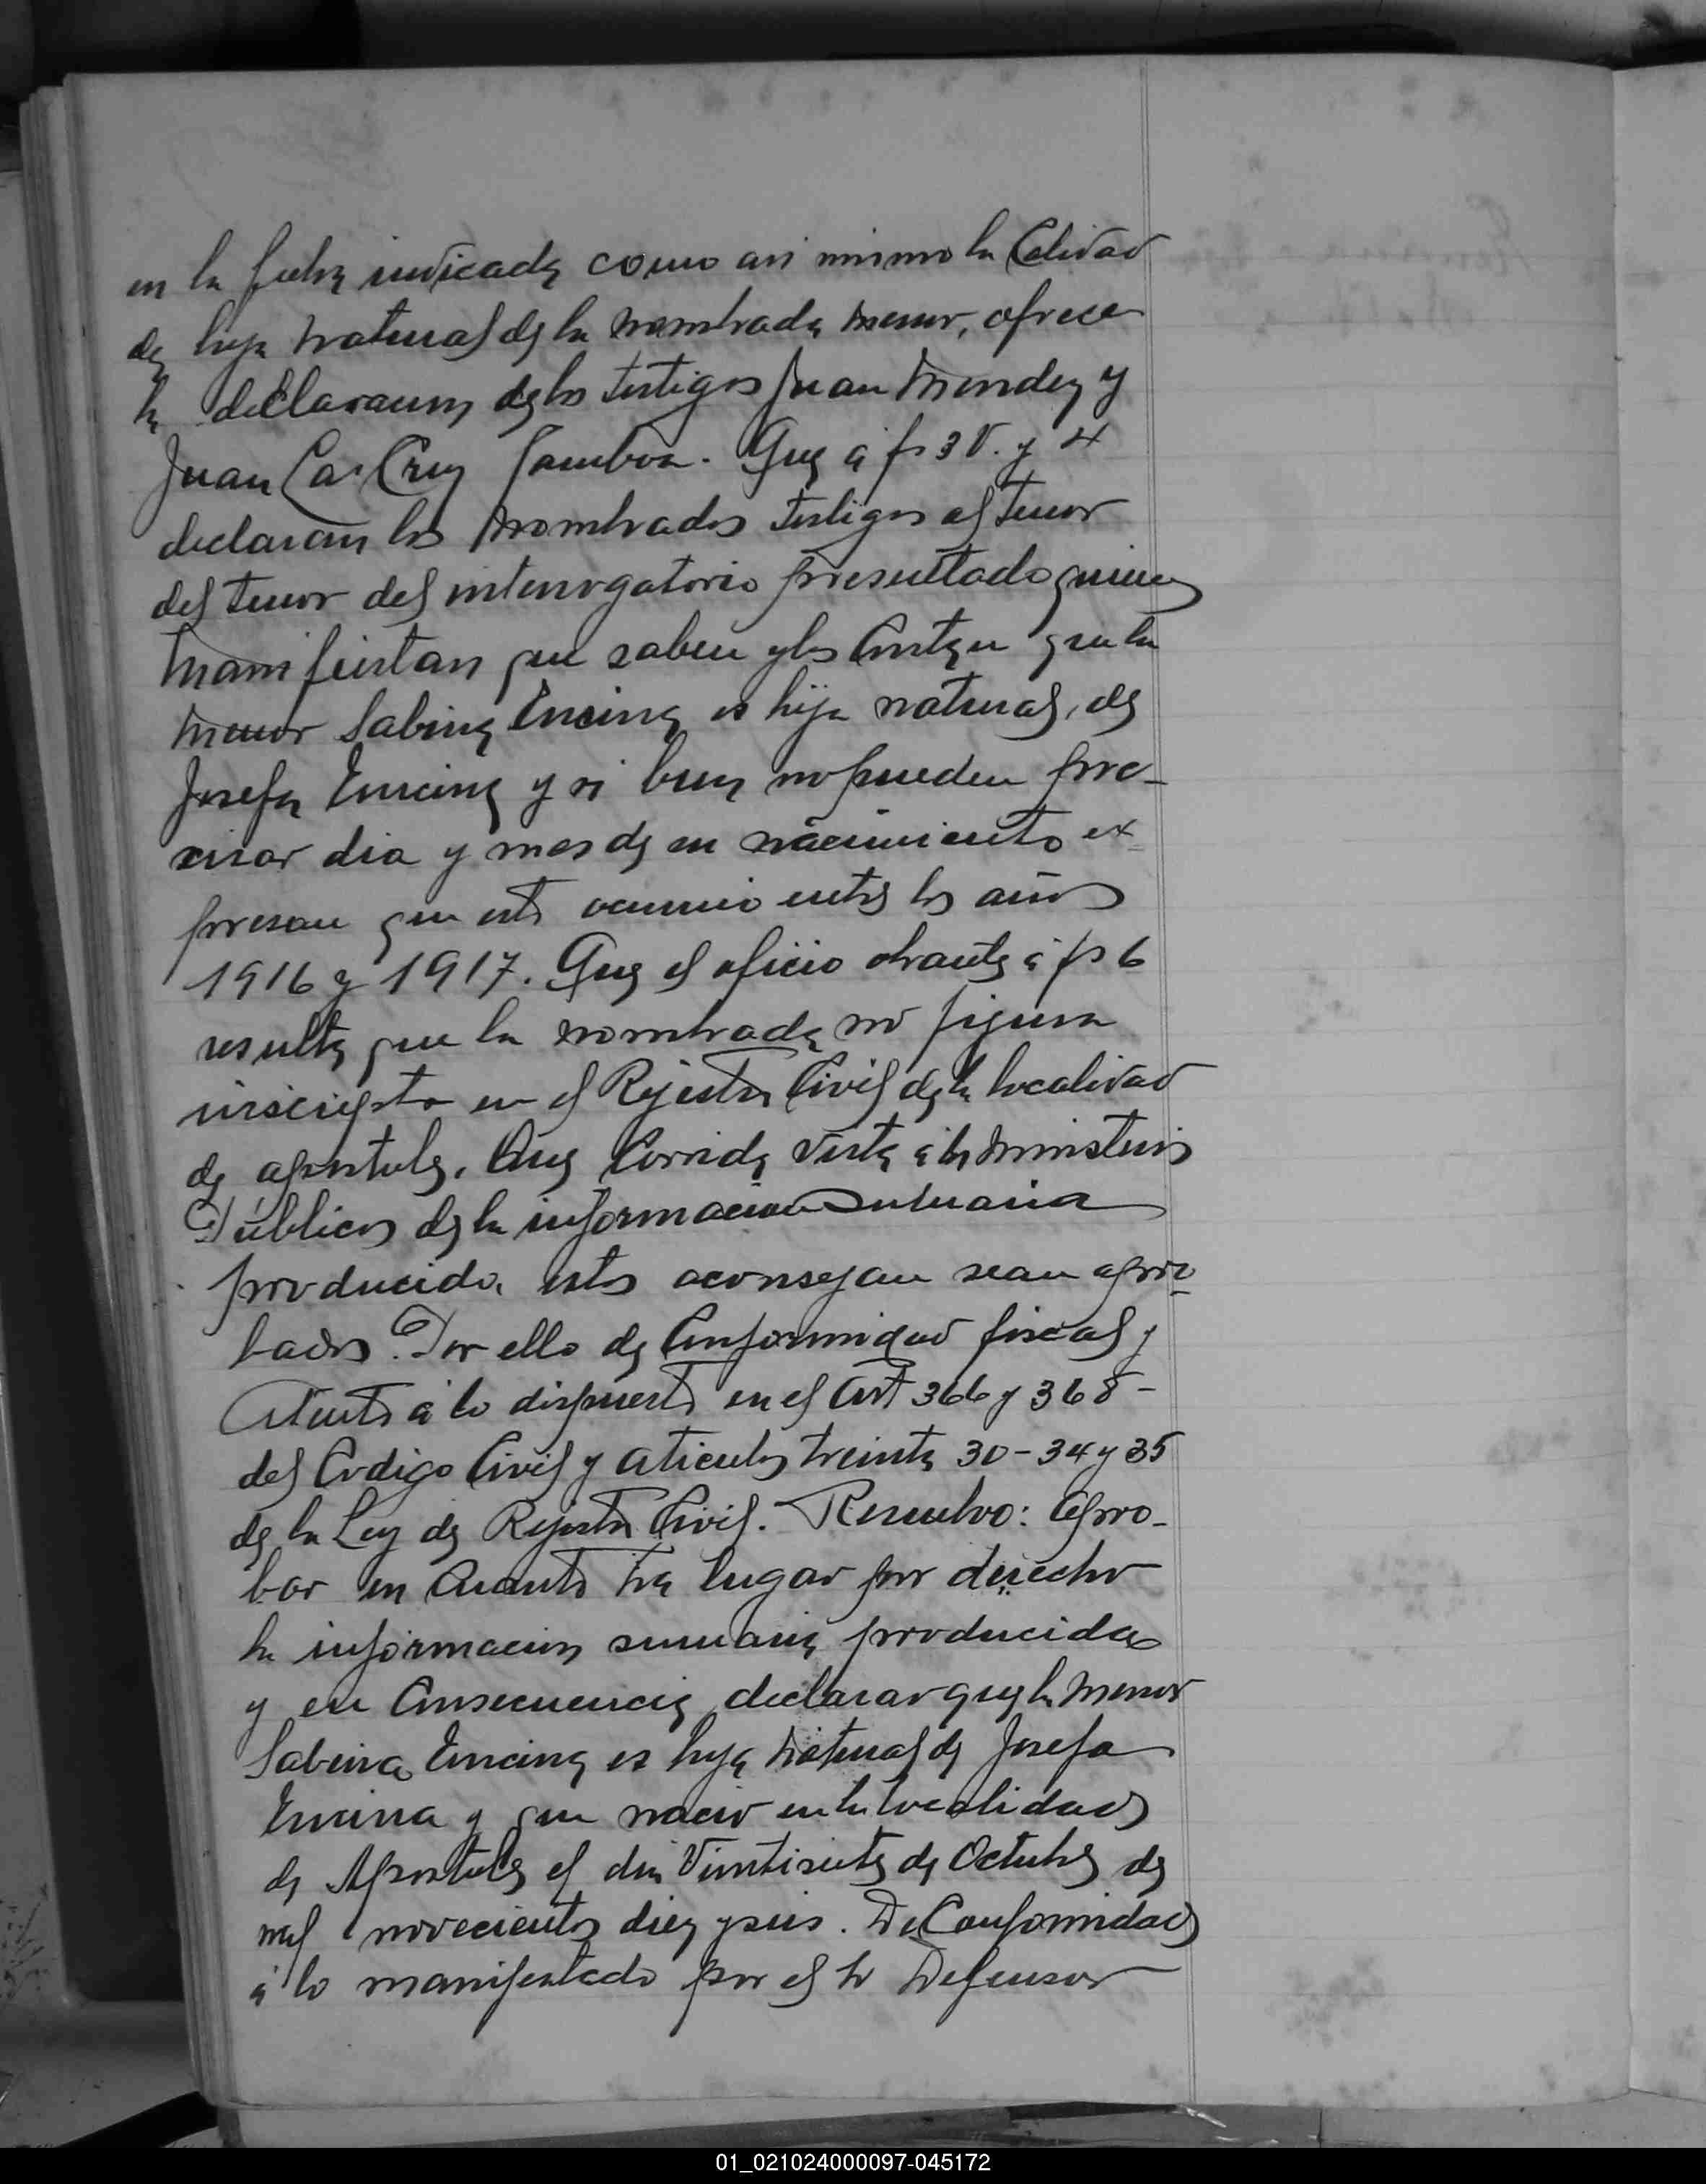 en la fecha indicada como asi mismo la Calidad
de hija natural de la nombrada menor, ofrece
la declaracion de los testigos Juan Mendez y
Juan La Cruz Gamboa. Que á fs 3 V. y 4
declaran los nombrados testigos al tenor
del tenor del interrogatorio presentado quienes
manifiestan que saben y les Consta que la
menor Sabina Encina es hija natural, de
Josefa Encina y si bien no pueden pre-
cisar dia y mes de su nacimiento ex
presan que esto ocurrio entre los años
1916 y 1917. Que el oficio obrante á fs 6
resulta que la nombrada no figura
inscripta en el Rejistro Civil de la localidad
de apostoles. Que Corrida vista á los Ministerios
Públicos de la informacion Sumaria
producida, estos aconsejan sean apro-
bados. Por ello de Conformidad fiscal y
Atento á lo dispuesto en el Art 366 y 368 -
del Codigo Civil y aticulos treinta 30 - 34 y 35
de la Ley de Rejistro Civil. Resuelvo: Apro-
bar en Cuanto ha lugar por derecho
la informacion sumaria producida
y en Consecuencia, declarar que la menor
Sabina Encina es hija natural de Josefa
Encina y que nacio en la localidad
de Apostoles el dia Veintisiete de Octubre de
mil novecientos diez y seis. De Conformidad
á lo manifestado por el Sr Defensor
01_021024000097-045172